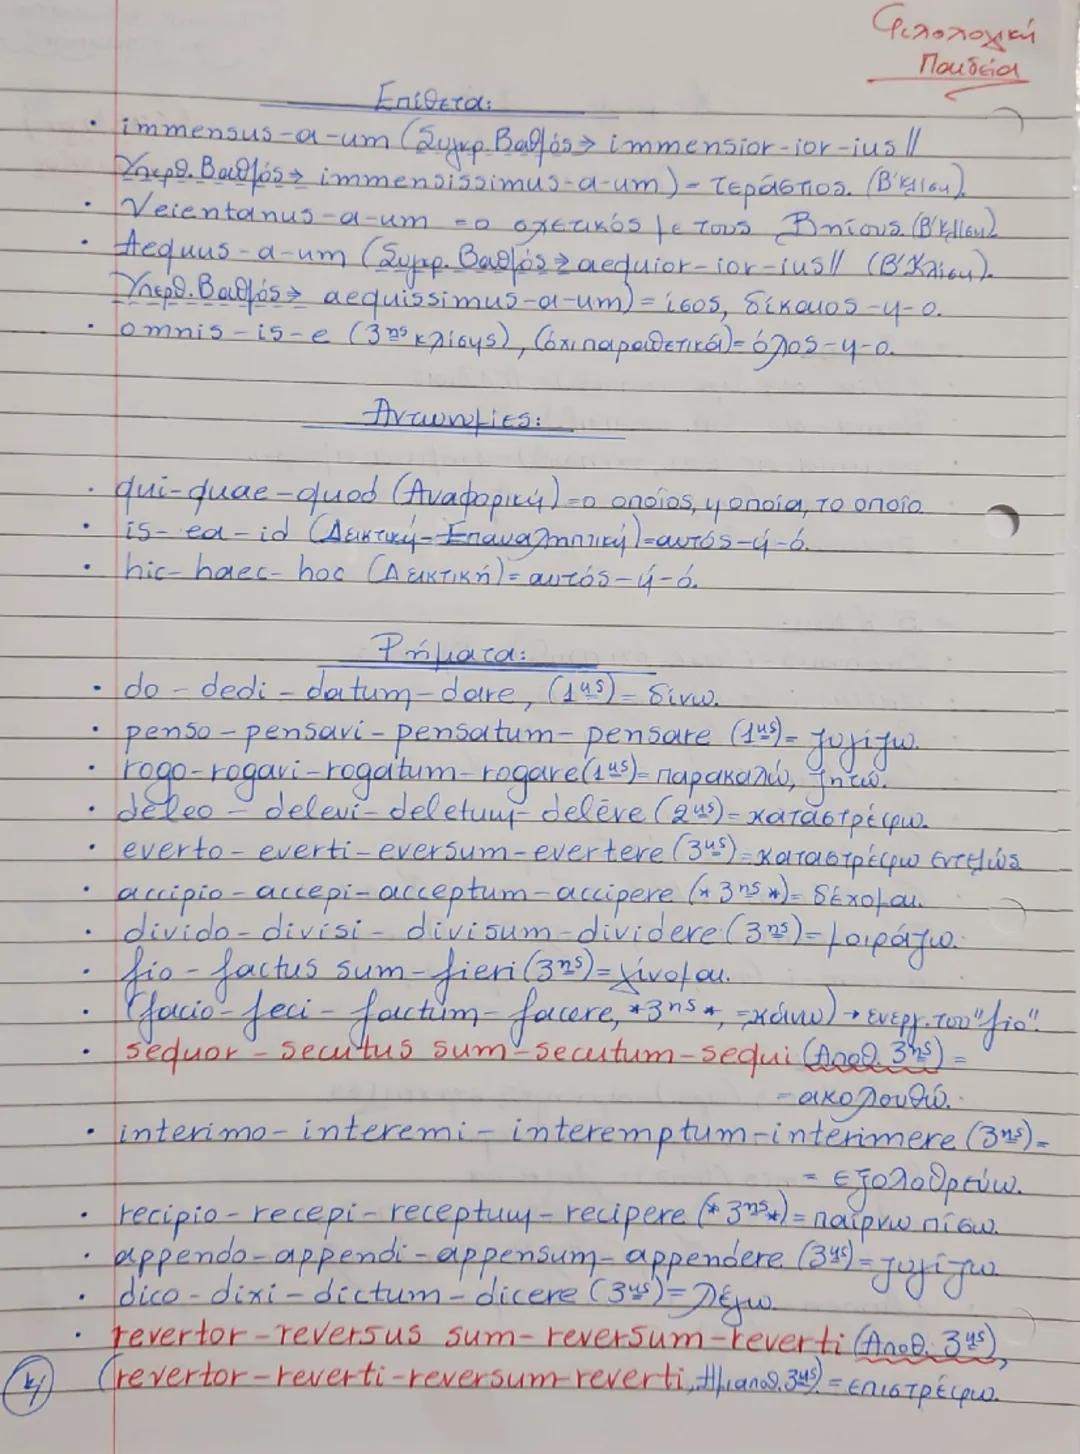 Φιλολογική
Παιδεία
Επίθετα:
• immensus-a-um (Συγκρ. Βαθμός → immensior-ior-ius //
Υπερθ. Βαθμός → immensissimus-a-um) = τεράστιος. (Β' κλίση)
• Veientanus-a-um = ο σχετικός με τους Βηίους. (Β' κλίση)
• Aequus-a-um (Συγκρ. Βαθμός → aequior-ior-ius // (Β' κλίση).
Υπερθ. Βαθμός → aequissimus-a-um) = ίσος, δίκαιος-η-ο.
• omnis-is-e (3ης κλίσης), (όχι παραθετικά) = όλος-η-ο.
Αντωνυμίες:
• qui-quae-quod (Αναφορική) = ο οποίος, η οποία, το οποίο
• is-ea-id (Δεικτική-Επαναληπτική) = αυτός-ή-ό.
• hic-haec-hoc (Δεικτική) = αυτός-ή-ό.
Ρήματα:
• do - dedi - datum - dare, (1ης) = δίνω.
• penso - pensavi - pensatum - pensare (1ης) = ζυγίζω.
• rogo - rogavi - rogatum - rogare (1ης) = παρακαλώ, ζητώ.
• deleo - delevi - deletum - delēre (2ης) = καταστρέφω.
• everto - everti - eversum - evertere (3ης) = καταστρέφω εντελώς
• accipio - accepi - acceptum - accipere (*3ης*) = δέχομαι.
• divido - divisi - divisum - dividere (3ης) = μοιράζω.
• fio - factus sum - fieri (3ης) = γίνομαι.
• (facio - feci - factum - facere, *3ης*, = κάνω) → ενεργ. του "fio".
• sequor - secutus sum - secutum - sequi (Αποθ. 3ης) =
= ακολουθώ.
• interimo - interemi - interemptum - interimere (3ης) =
= εξολοθρεύω.
• recipio - recepi - receptum - recipere (*3ης*) = παίρνω πίσω.
• appendo - appendi - appensum - appendere (3ης) = ζυγίζω
• dico - dixi - dictum - dicere (3ης) = λέγω.
• revertor - reversus sum - reversum - reverti (Αποθ. 3ης),
(revertor - reverti - reversum - reverti, Ημιαποθ. 3ης) = επιστρέφω.